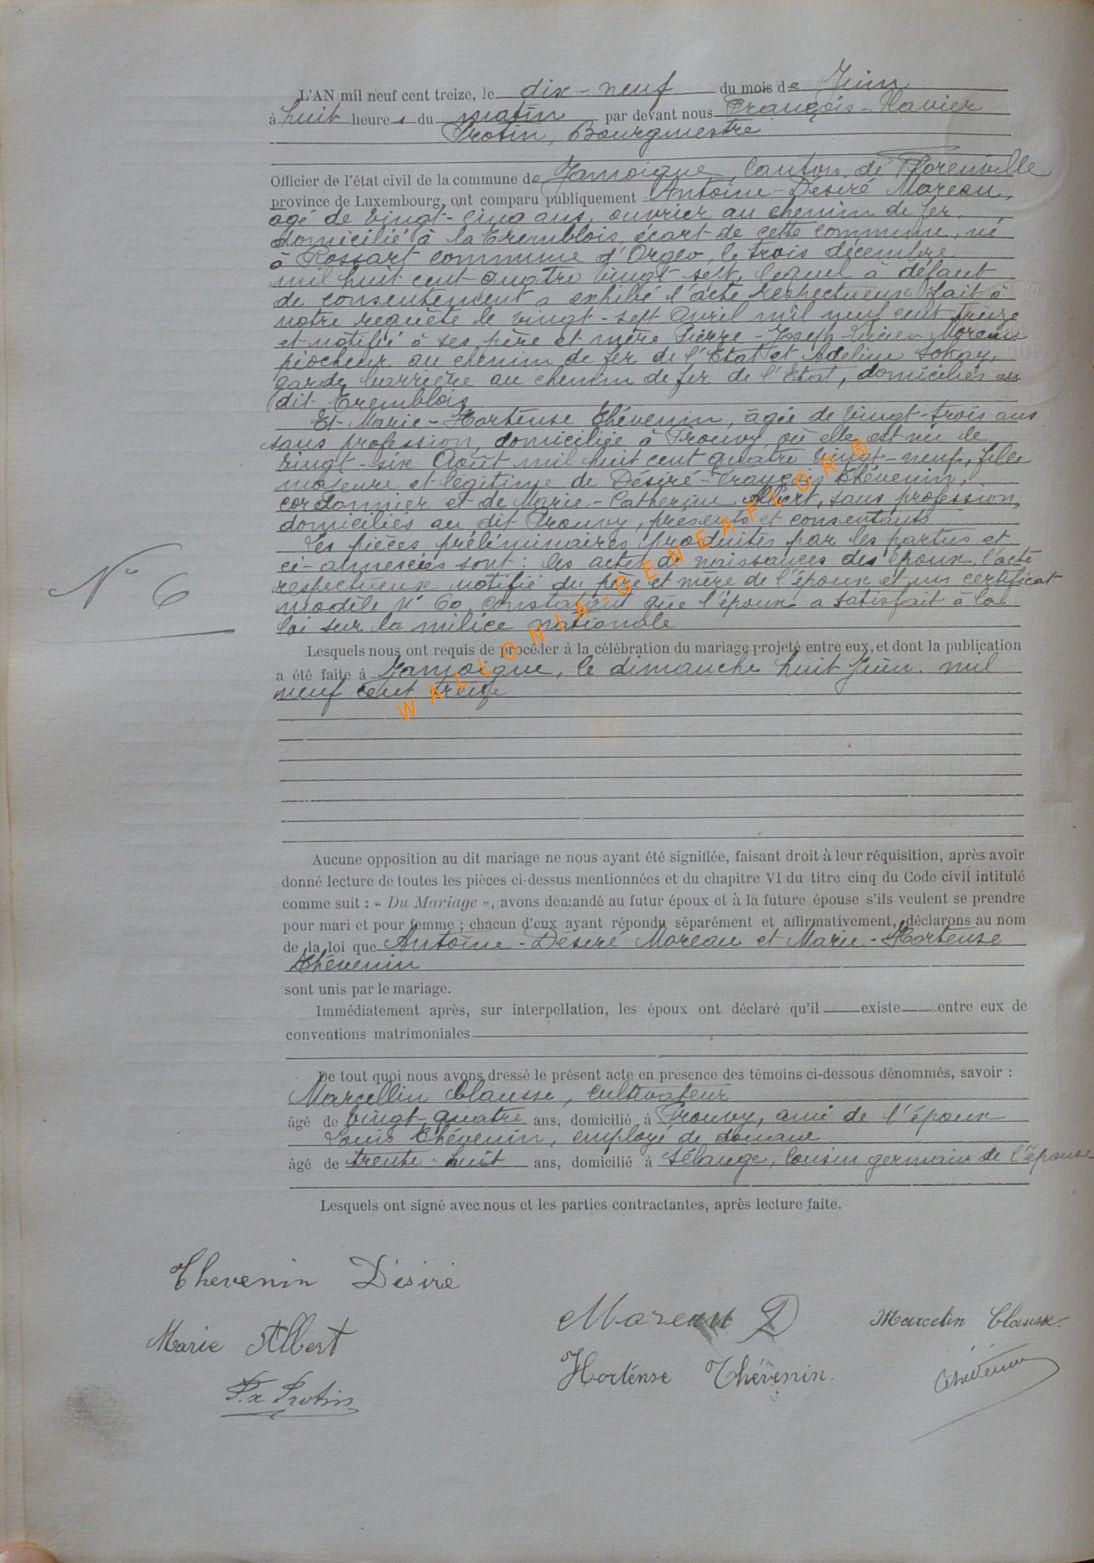 L'AN mil neuf cent treize, le dix-neuf du mois de Juin
à huit heures du matin par devant nous François-Xavier
Protin, Bourgmestre
Officier de l'état civil de la commune de Jamoigne, Canton de Florenville
province de Luxembourg, ont comparu publiquement Antoine-Désiré Moreau,
agé de vingt-cinq ans, ouvrier au chemin de fer
domicilié à la Tremblois écart de cette commune, né
à Rossart commune d'Orgeo, le trois décembre
mil huit cent quatre vingt sept, lequel à défaut
de consentement a exhibé l'acte respectueux fait à
notre requête le vingt-sept Avril mil neuf cent treize
et notifié à ses père et mère Pierre-Joseph-Lucien Moreau
piocheur au chemin de fer de l'Etat et Adeline
garde barrière au chemin de fer de l'Etat, domiciliés au
dit Tremblois
Et Marie-Hortense Thévenin, âgée de vingt-trois ans
sans profession, domiciliée à Prouvy où elle est née le
vingt-six Août mil huit cent quatre vingt-neuf, fille
majeure et légitime de Désiré-François Thévenin,
cordonnier et de Marie-Catherine Albert, sans profession,
domiciliés au dit Prouvy, présents et consentants
Les pièces préliminaires produites par les parties et
ci-annexées sont: les actes de naissances des époux, l'acte
respectueux notifié du père et mère de l'époux et un certificat
modèle N° 60 constatant que l'époux a satisfait à la
loi sur la milice nationale
N° 6
Lesquels nous ont requis de procéder à la célébration du mariage projeté entre eux, et dont la publication
a été faite à Jamoigne, le dimanche huit Juin mil
neuf cent treize
WALLONIA-GENEAFLOR®
Aucune opposition au dit mariage ne nous ayant été signifiée, faisant droit à leur réquisition, après avoir
donné lecture de toutes les pièces ci-dessus mentionnées et du chapitre VI du titre cinq du Code civil intitulé
comme suit : « Du Mariage », avons demandé au futur époux et à la future épouse s'ils veulent se prendre
pour mari et pour femme ; chacun d'eux ayant répondu séparément et affirmativement, déclarons au nom
de la loi que Antoine-Désiré Moreau et Marie-Hortense
Thévenin
sont unis par le mariage.
Immédiatement après, sur interpellation, les époux ont déclaré qu'il existe entre eux de
conventions matrimoniales
De tout quoi nous avons dressé le présent acte en présence des témoins ci-dessous dénommés, savoir :
Marcellin Clausse, cultivateur
âgé de vingt-quatre ans, domicilié à Prouvy, ami de l'époux
Louis Thévenin, employé de douane
âgé de trente-huit ans, domicilié à Sélange, cousin germain de l'épouse
Lesquels ont signé avec nous et les parties contractantes, après lecture faite.
Thevenin Désiré
Moreau D Marcelin Clausse
Marie Albert
Hortense Thévenin. Thévenin
F. x. Protin